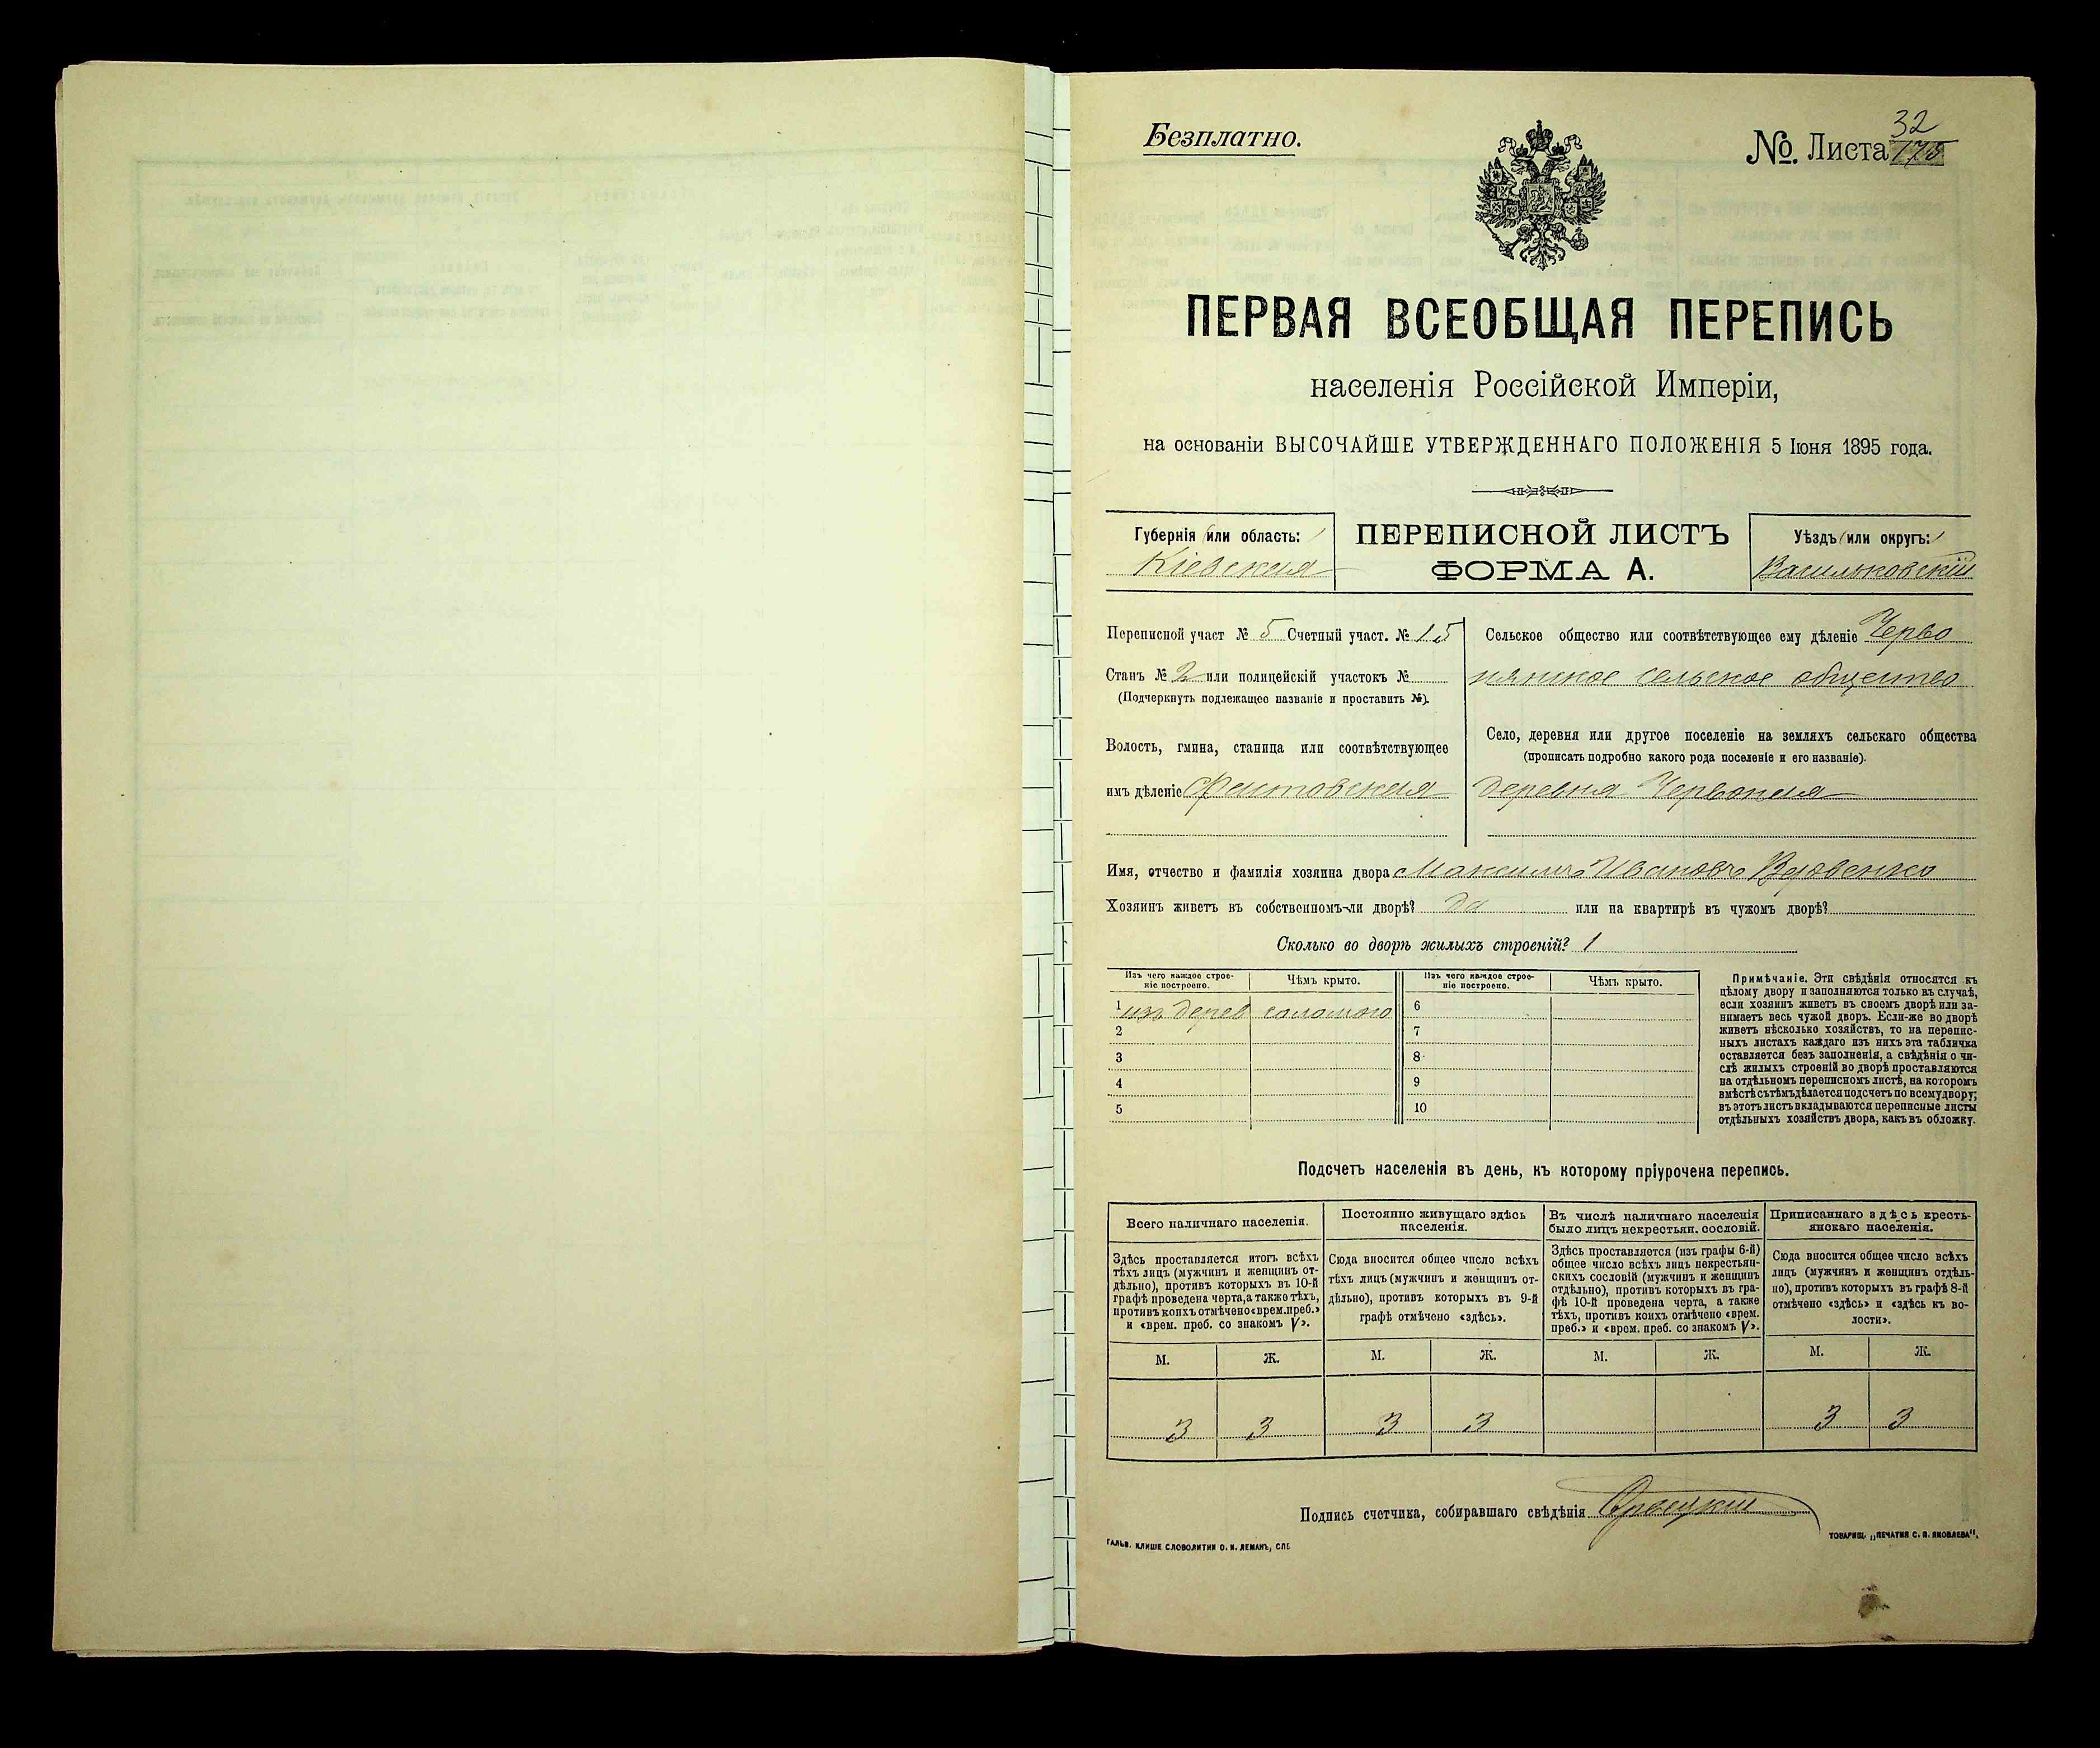 Безплатно.
32
№. Листа 175
ПЕРВАЯ ВСЕОБЩАЯ ПЕРЕПИСЬ
населенія Россійской Имперіи,
на основаніи ВЫСОЧАЙШЕ УТВЕРЖДЕННАГО ПОЛОЖЕНІЯ 5 Іюня 1895 года.
Губернія (или область:)
Кіевская
ПЕРЕПИСНОЙ ЛИСТЪ
ФОРМА А.
Уѣздъ (или округъ:)
Васильковскій
Переписной участ № 5 Счетный участ. № 15
Станъ № 2 или полицейскій участокъ №
(Подчеркнуть подлежащее названіе и проставить №).
Волость, гмина, станица или соотвѣтствующее
имъ дѣленіе Фастовская
Сельское общество или соотвѣтствующее ему дѣленіе Черво
нянское сельское общество
Село, деревня или другое поселеніе на земляхъ сельскаго общества
(прописать подробно какого рода поселеніе и его названіе).
деревня Червоная
Имя, отчество и фамилія хозяина двора Максимъ Ивановъ Вдовенко
Хозяинъ живетъ въ собственномъ-ли дворѣ? да или на квартирѣ въ чужомъ дворѣ?
Сколько во дворѣ жилыхъ строеній? 1
Изъ чего каждое строе-
ніе построено.
Чѣмъ крыто.
Изъ чего каждое строе-
ніе построено.
Чѣмъ крыто.
1 изъ дерев соломою 6
2 7
3 8
4 9
5 10
Примѣчаніе. Эти свѣдѣнія относятся къ
цѣлому двору и заполняются только въ случаѣ,
если хозяинъ живетъ въ своемъ дворѣ или за-
нимаетъ весь чужой дворъ. Если-же во дворѣ
живетъ нѣсколько хозяйствъ, то на перепис-
ныхъ листахъ каждаго изъ нихъ эта табличка
оставляется безъ заполненія, а свѣдѣнія о чи-
слѣ жилыхъ строеній во дворѣ проставляются
на отдѣльномъ переписномъ листѣ, на которомъ
вмѣстѣ съ тѣмъ дѣлается подсчетъ по всему двору;
въ этотъ листъ вкладываются переписные листы
отдѣльныхъ хозяйствъ двора, какъ въ обложку.
Подсчетъ населенія въ день, къ которому пріурочена перепись.
Всего наличнаго населенія.
Здѣсь проставляется итогъ всѣхъ
тѣхъ лицъ (мужчинъ и женщинъ от-
дѣльно), противъ которыхъ въ 10-й
графѣ проведена черта, а также тѣхъ,
противъ коихъ отмѣчено «врем. преб.»
и «врем. преб. со знакомъ V».
Постоянно живущаго здѣсь
населенія.
Сюда вносится общее число всѣхъ
тѣхъ лицъ (мужчинъ и женщинъ от-
дѣльно), противъ которыхъ въ 9-й
графѣ отмѣчено «здѣсь».
Въ числѣ наличнаго населенія
было лицъ некрестьян. сословій.
Здѣсь проставляется (изъ графы 6-й)
общее число всѣхъ лицъ некрестьян-
скихъ сословій (мужчинъ и женщинъ
отдѣльно), противъ которыхъ въ гра-
фѣ 10-й проведена черта, а также
тѣхъ, противъ коихъ отмѣчено «врем.
преб.» и «врем. преб. со знакомъ V».
Приписаннаго здѣсь кресть-
янскаго населенія.
Сюда вносится общее число всѣхъ
лицъ (мужчинъ и женщинъ отдѣль-
но), противъ которыхъ въ графѣ 8-й
отмѣчено «здѣсь» и «здѣсь къ во-
лости».
М. Ж. М. Ж. М. Ж. М. Ж.
3 3 3 3 3 3
Подпись счетчика, собиравшаго свѣдѣнія
ГАЛЬВ. КЛИШЕ СЛОВОЛИТНИ О. И. ЛЕМАНЪ, СПБ
ТОВАРИЩ. „ПЕЧАТНЯ С. П. ЯКОВЛЕВА".